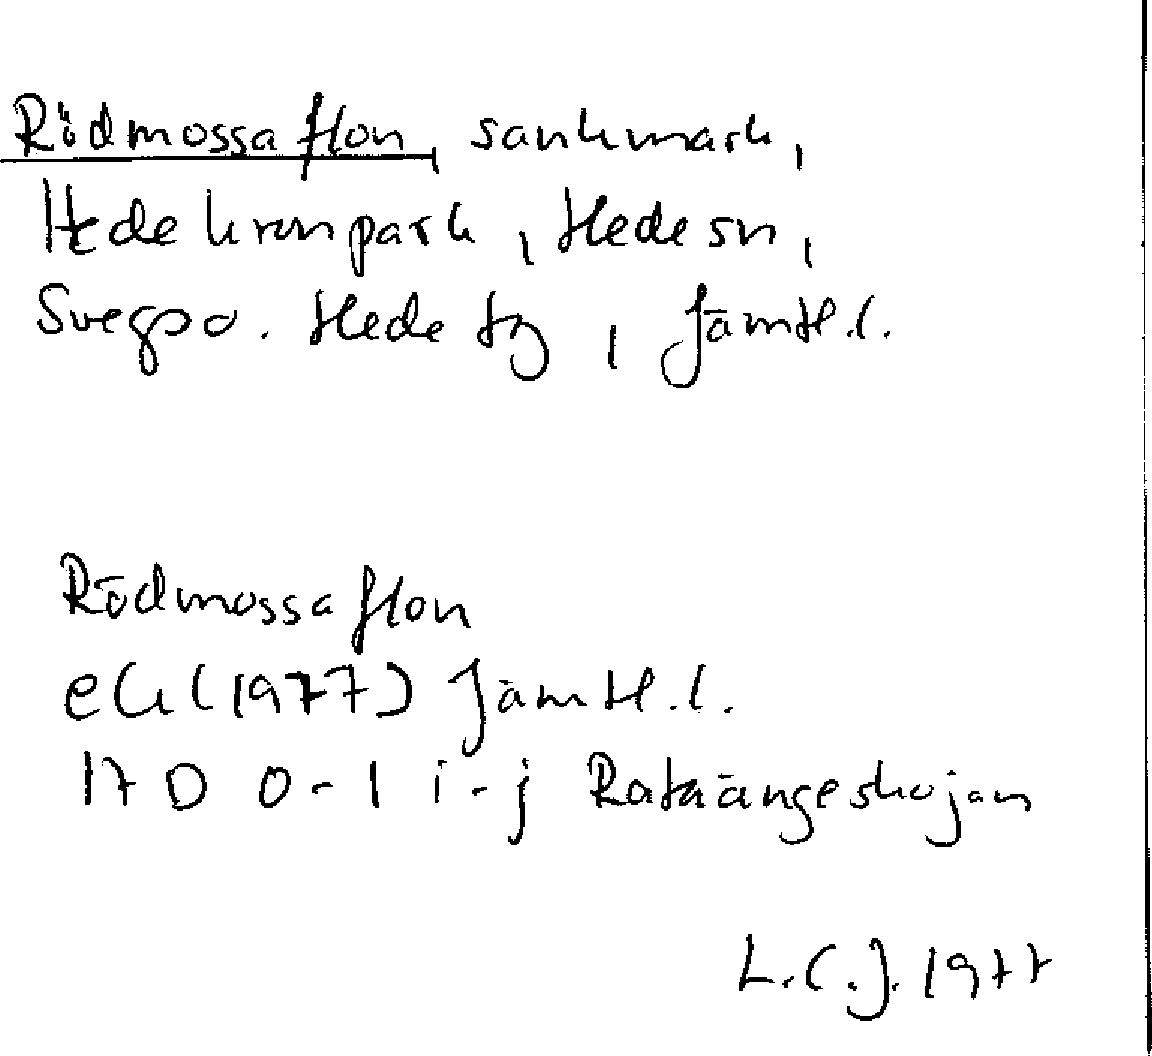 Rödmossaflon, sankmark,
Hede kronpark, Hede sn,
Svegs po. Hede tg, Jämtl. l.
Rödmossaflon
ek (1977) Jämtl. l.
17 D 0-1 i-j Rataängeskojan
L.C.J. 1977